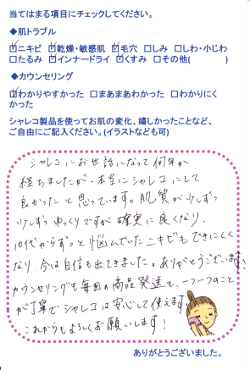 当てはまる項目にチェックしてください。
◆肌トラブル
☑ニキビ ☑乾燥・敏感肌 ☑毛穴 □しみ □しわ・小じわ
□たるみ ☑インナードライ ☑くすみ □その他( )
◆カウンセリング
☑わかりやすかった □まあまあわかった □わかりにくかった
シャレコ製品を使ってお肌の変化、嬉しかったことなど、
ご自由にご記入ください。(イラストなども可)
シャレコにお世話になって何年か
経ちましたが、本当にシャレコにして
良かったと思っています。肌質が少しずつ
少しずつゆっくりですが確実に良くなり、
10代からずっと悩んでいたニキビもできにくく
なり今は自信も出てきました。ありがとうございます!
カウンセリングも毎回の商品発送も、一つ一つのこと
が丁寧でシャレコは安心して使えます。
これからもよろしくお願いします!
ありがとうございました。